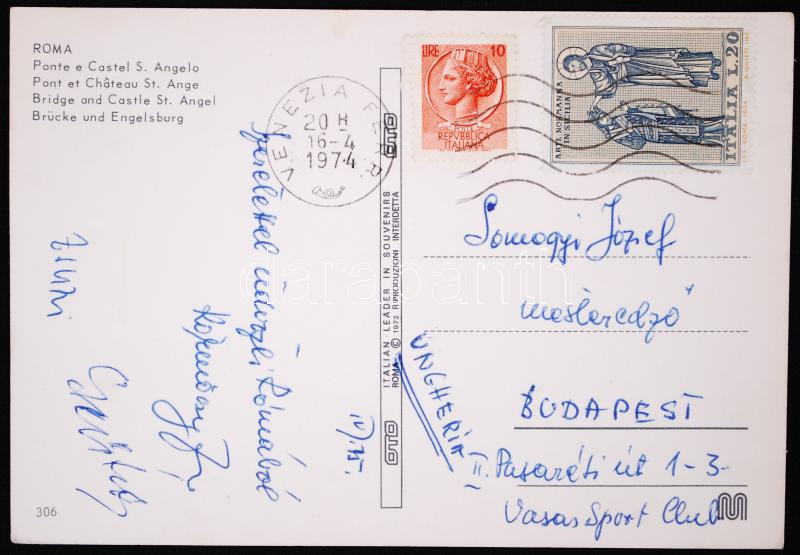 ROMA
Ponte e Castel S. Angelo
Pont et Château St. Ange
Bridge and Castle St. Angel
Brücke und Engelsburg
VENEZIA FERR.
20 H
16-4
1974
LIRE 10
POSTE
REPVBBLICA
ITALIANA
ARTE NORMANNA
IN SICILIA
ITALIA L.20
I.P.S.-ROMA-1974
A. QUIETI INC.
Szeretettel üdvözli Rómából
IV/15.
OTO
ITALIAN LEADER IN SOUVENIRS
ROMA © 1972 RIPRODUZIONE INTERDETTA
OTO
Somogyi József
mesteredző
UNGHERIA
BUDAPEST
II. Pasaréti út 1-3.
Vasas Sport Club
306
darabanth